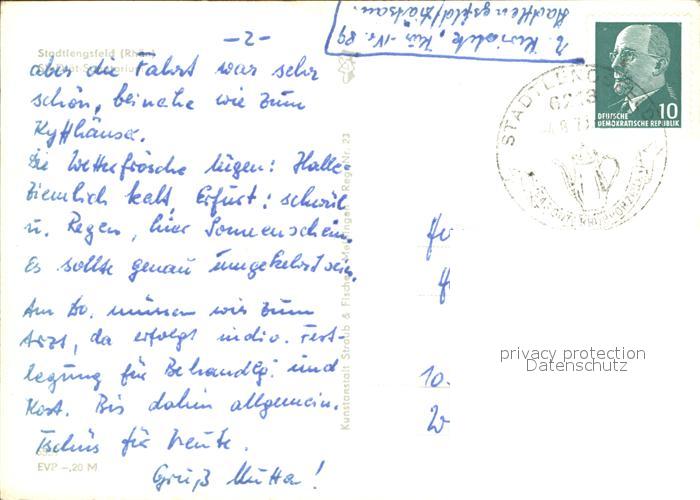 - 2 -
Stadtlengsfeld (Rhön)
aber die Fahrt war sehr
schön, beinahe wie zum
Kyffhäuser.
Die Wetterfrösche lügen: Halle
ziemlich kalt, Erfurt: schwül
u. Regen, hier Sonnenschein.
Es sollte genau umgekehrt sein.
Am Do. müssen wir zum
Arzt, da erfolgt indiv. Fest-
legung für Behandlg. und
Kost. Bis dahin allgemein.
Tschüs für heute.
Gruß Mutta!
EVP -,20 M
Kunstanstalt Straub & Fischer Meiningen Reg.-Nr. 23
Kur-Nr. 89
Stadtlengsfeld
STADTLENGSFELD
DEUTSCHE
DEMOKRATISCHE REPUBLIK
10
10.
privacy protection
Datenschutz